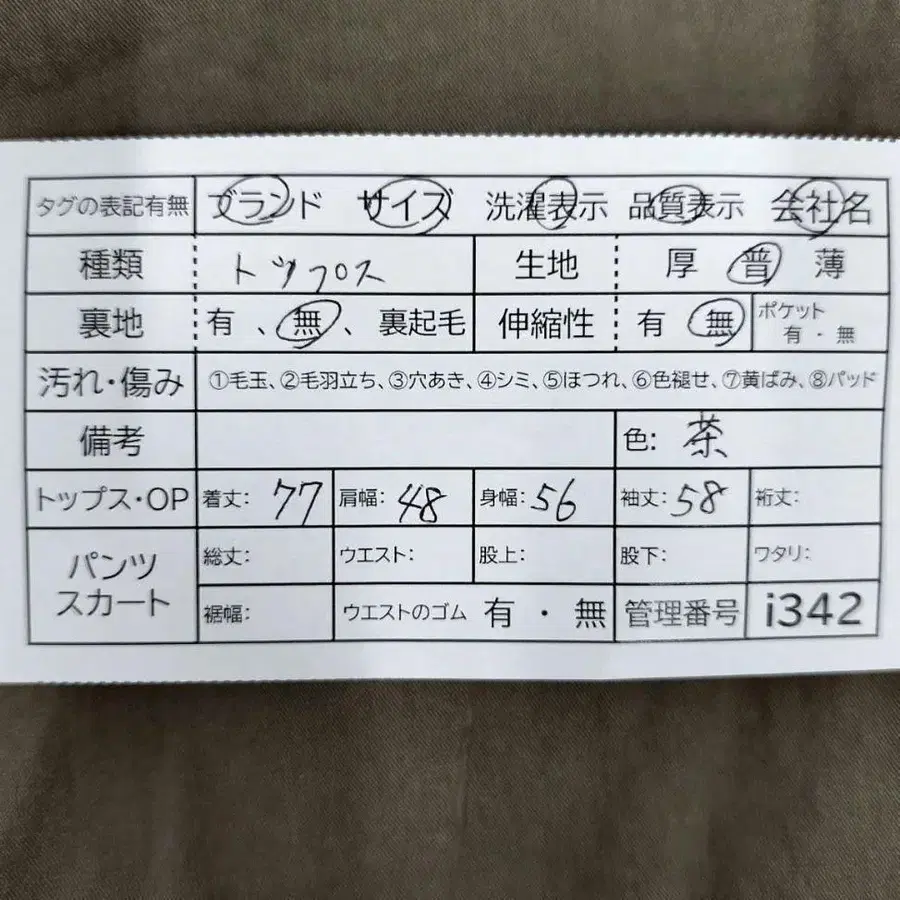 タグの表記有無 ブランド サイズ 洗濯表示 品質表示 会社名
種類 トップス 生地 厚 普 薄
裏地 有、無、裏起毛 伸縮性 有 無 ポケット 有・無
汚れ・傷み ①毛玉、②毛羽立ち、③穴あき、④シミ、⑤ほつれ、⑥色褪せ、⑦黄ばみ、⑧パッド
備考 色: 茶
トップス・OP 着丈: 77 肩幅: 48 身幅: 56 袖丈: 58 裄丈:
パンツ スカート 総丈: ウエスト: 股上: 股下: ワタリ:
裾幅: ウエストのゴム 有・無 管理番号 i342